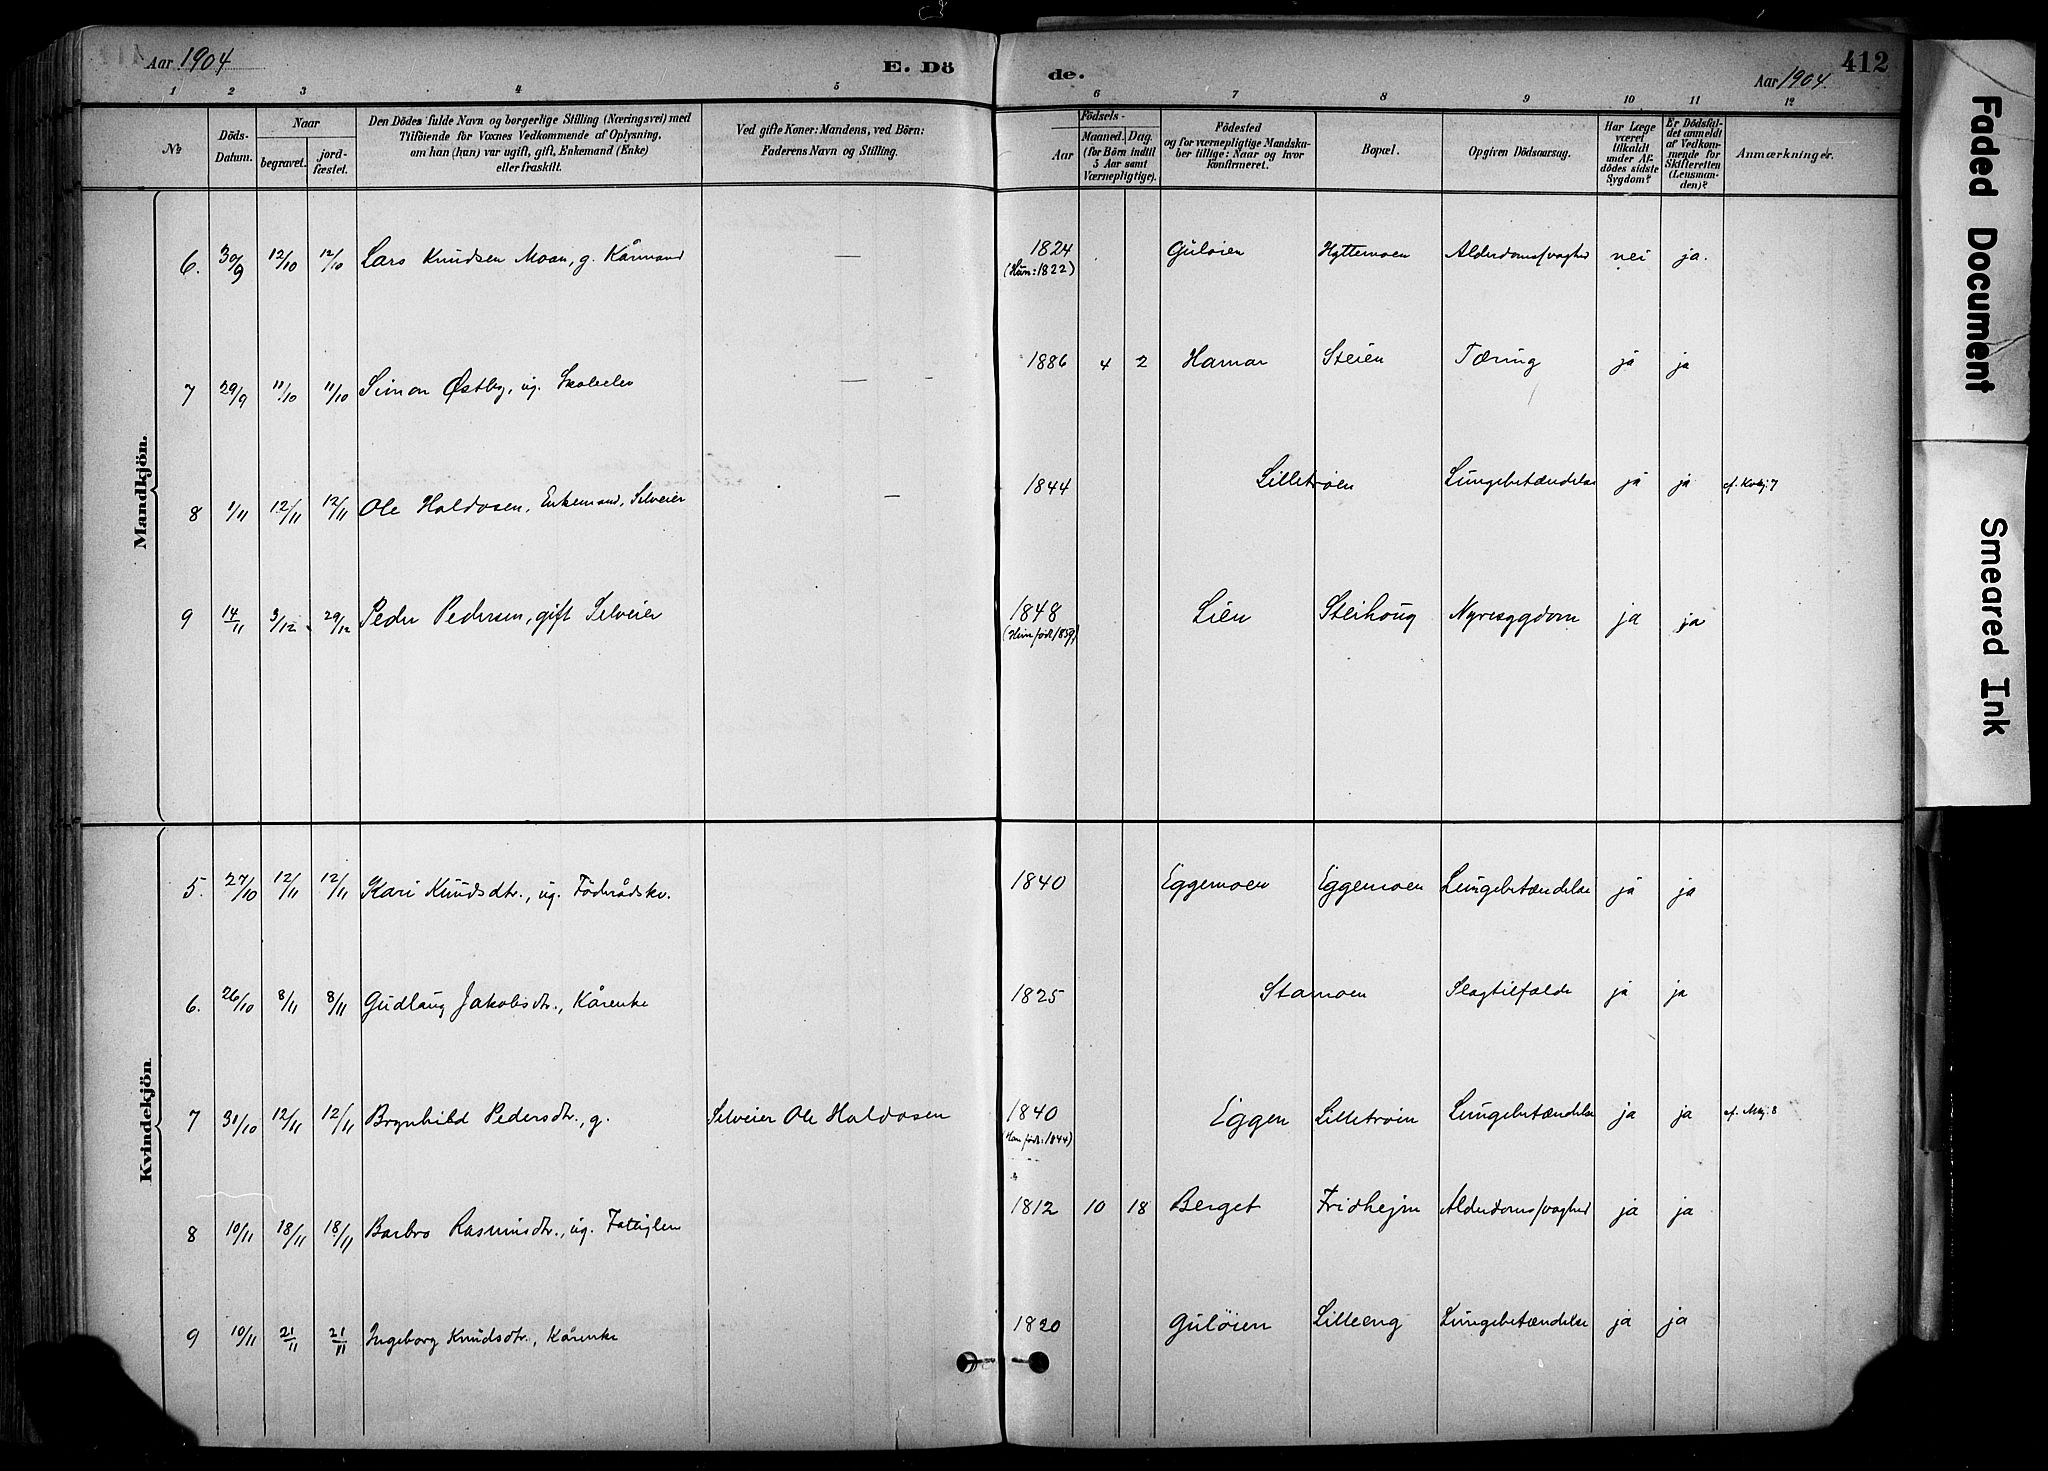 Aar 1904
E. Dö
de.
412
Aar 1904.
1 2 3 4 5 6 7 8 9 10 11 12
№
Döds-
Datum.
Naar
begravet.
jord-
fæstet.
Den Dödes fulde Navn og borgerlige Stilling (Næringsvei) med
Tilföiende for Voxnes Vedkommende af Oplysning,
om han (hun) var ugift, gift, Enkemand (Enke)
eller fraskilt.
Ved gifte Koner: Mandens, ved Börn:
Faderens Navn og Stilling.
Födsels-
Aar
Maaned. Dag.
(for Börn indtil
5 Aar samt
Værnepligtige).
Födested
og for værnepligtige Mandska-
ber tillige: Naar og hvor
konfirmeret.
Bopæl.
Opgiven Dödsaarsag.
Har Læge
været
tilkaldt
under Af-
dödes sidste
Sygdom?
Er Dödsfal-
det anmeldt
af Vedkom-
mende for
Skifteretten
(Lensman-
den)?
Anmærkninger.
Mandkjön.
6. 30/9 12/10 12/10 Lars Knudsen Moan, g. Kårmand — 1824 Guløien Hyttemoen Alderdomssvaghed nei ja.
(Hun: 1822)
7 29/9 11/10 11/10 Simon Østby, ug. Skoleelev — 1886 4 2 Hamar Steien Tæring ja ja
8 1/11 12/11 12/11 Ole Haldosen, Enkemand, Selveier — 1844 Lilletrøen Lungebetændelse ja ja cf. Kvkj: 7
9 14/11 3/12 29/12 Peder Pedersen, gift Selveier 1848 Lien Steihoug Nyresygdom ja ja
(Hun født 1859)
Kvindekjön
5. 27/10 12/11 12/11 Kari Knudsdtr., ug. Føderådskv. 1840 Eggemoen Eggemoen Lungebetændelse ja ja
6. 26/10 8/11 8/11 Gudlaug Jakobsdtr., Kårenke 1825 Stamoen Slagtilfælde ja ja
7 31/10 12/11 12/11 Brynhild Pedersdtr., g. Selveier Ole Haldosen 1840 Eggen Lilletrøen Lungebetændelse ja ja cf. Mkj: 8
(Han født: 1844)
8 10/11 18/11 18/11 Barbro Rasmusdtr., ug. Fattiglem 1812 10 18 Berget Fridhejm Alderdomssvaghed ja ja
9 10/11 21/11 21/11 Ingeborg Knudsdtr., Kårenke 1820 Guløien Lilleeng Lungebetændelse ja ja
Faded Document
Smeared Ink